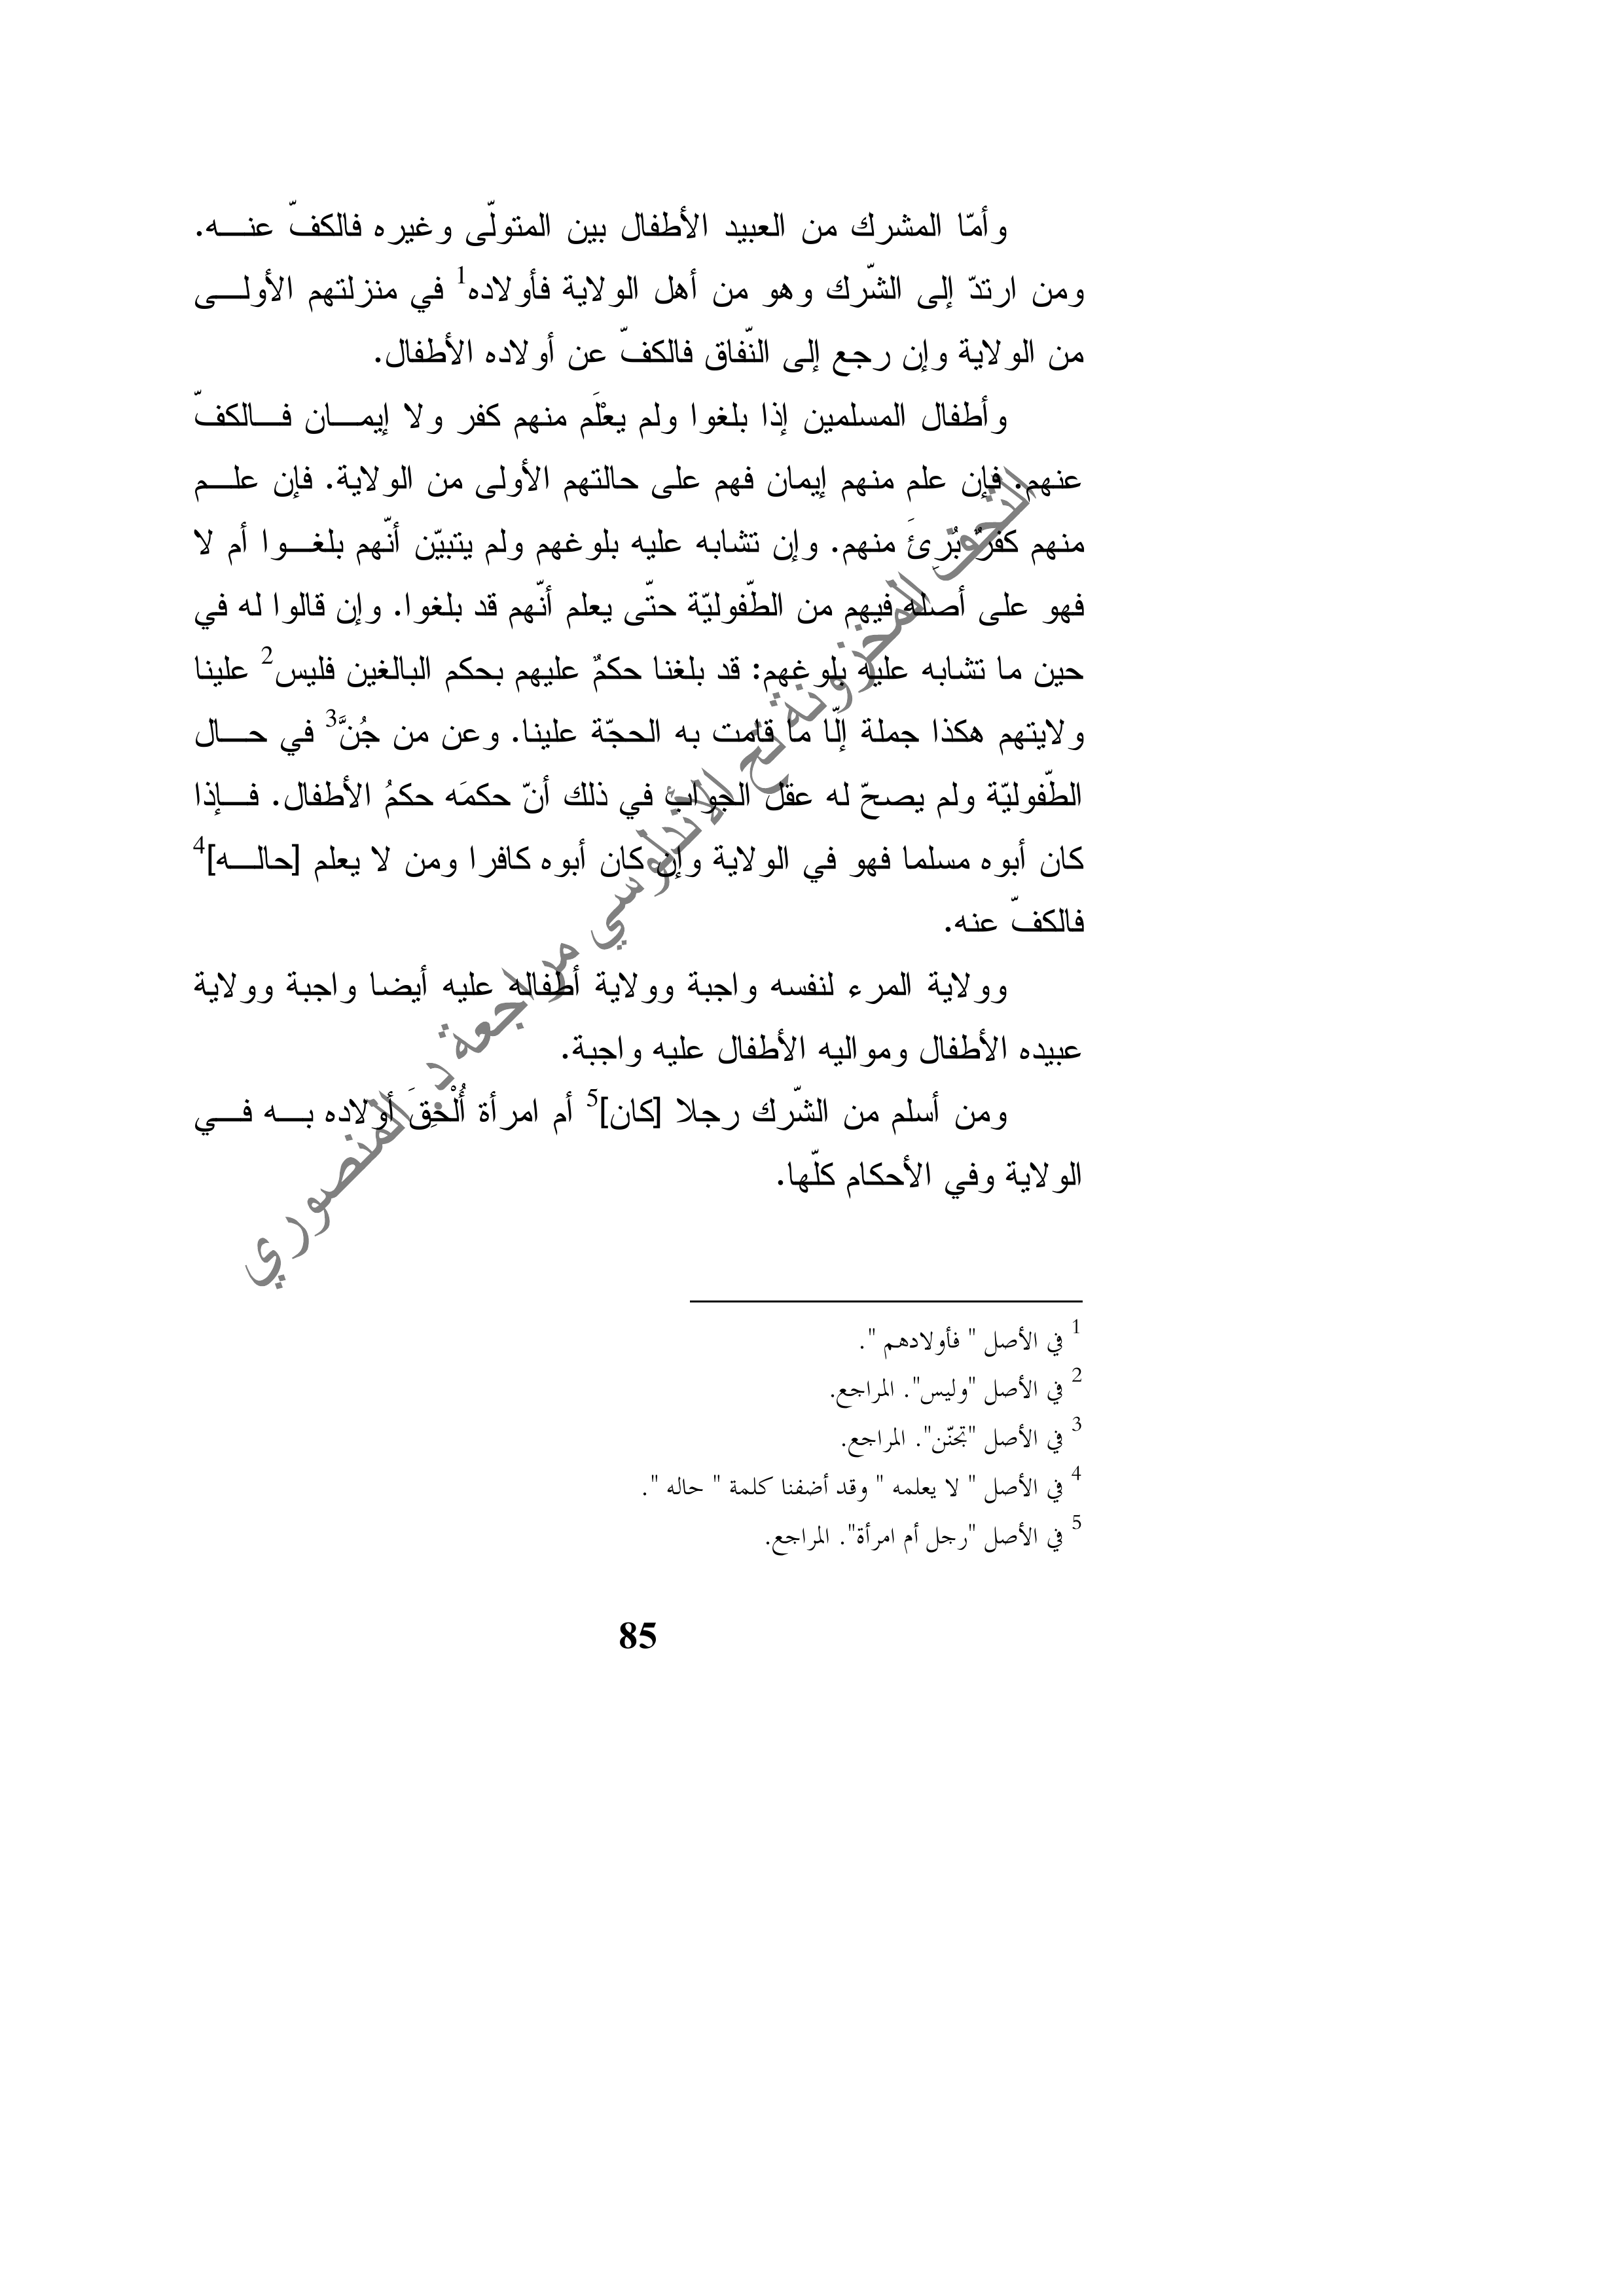 وأمّا المشرك من العبيد الأطفال بين المتولّى وغيره فالكفّ عنه.
ومن ارتدّ إلى الشّرك وهو من أهل الولاية فأولاده1 في منزلتهم الأولى
من الولاية وإن رجع إلى النّفاق فالكفّ عن أولاده الأطفال.
وأطفال المسلمين إذا بلغوا ولم يعْلَم منهم كفر ولا إيمان فالكفّ
عنهم. فإن علم منهم إيمان فهم على حالتهم الأولى من الولاية. فإن علم
منهم كفرٌ بُرِئَ منهم. وإن تشابه عليه بلوغهم ولم يتبيّن أنّهم بلغوا أم لا
فهو على أصله فيهم من الطّفوليّة حتّى يعلم أنّهم قد بلغوا. وإن قالوا له في
حين ما تشابه عليه بلوغهم: قد بلغنا حكمٌ عليهم بحكم البالغين فليس2 علينا
ولايتهم هكذا جملة إلّا ما قامت به الحجّة علينا. وعن من جُنَّ3 في حال
الطّفوليّة ولم يصحّ له عقل الجوابُ في ذلك أنّ حكمَه حكمُ الأطفال. فإذا
كان أبوه مسلما فهو في الولاية وإن كان أبوه كافرا ومن لا يعلم [حاله]4
فالكفّ عنه.
وولاية المرء لنفسه واجبة وولاية أطفاله عليه أيضا واجبة وولاية
عبيده الأطفال ومواليه الأطفال عليه واجبة.
ومن أسلم من الشّرك رجلا [كان]5 أم امرأة أُلْحِقَ أولاده به في
الولاية وفي الأحكام كلّها.
1 في الأصل " فأولادهم ".
2 في الأصل "وليس". المراجع.
3 في الأصل "تجنّن". المراجع.
4 في الأصل " لا يعلمه " وقد أضفنا كلمة " حاله ".
5 في الأصل "رجل أم امرأة". المراجع.
85
التحف المخزونة تح الأندلوسي مراجعة د. المنصوري